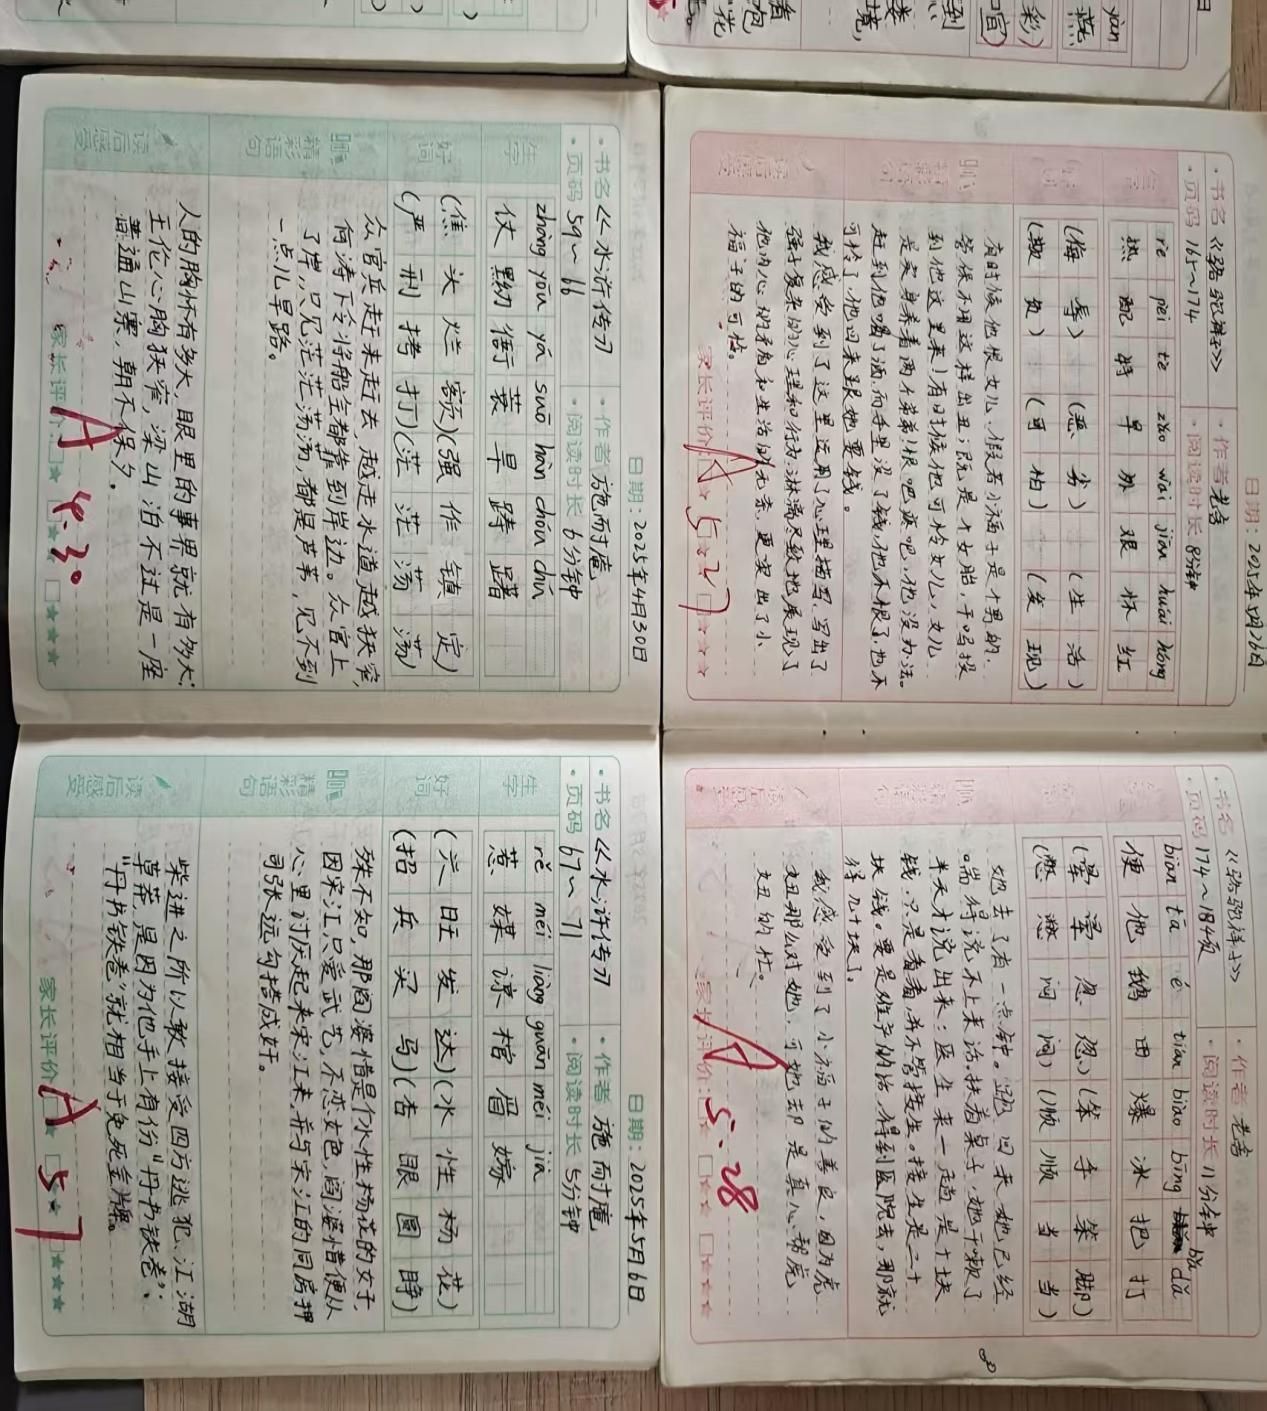 日期：2025年4月30日
·书名《水浒传》
·作者 施耐庵
·页码 59~66
·阅读时长 6分钟
生字
zhàng yǒu yá suō hàn chóu chú
仗 黝 衙 蓑 旱 踌 躇
好词
(焦头烂额)(强作镇定)
(严刑拷打)(茫茫荡荡)
精彩语句
众官兵赶来赶去,越走水道越狭窄,
何涛下令将船全都靠到岸边。众官上
了岸,只见茫茫荡荡,都是芦苇,见不到
一点儿旱路。
读后感受
人的胸怀有多大,眼里的事界就有多大;
王伦心胸狭窄,梁山泊不过是一座
普通山寨,朝不保夕。
家长评价:
A 4.30
日期：2025年5月6日
·书名《水浒传》
·作者 施耐庵
·页码 67~71
·阅读时长 5分钟
生字
rě méi liàng guān méi jià
惹 媒 谅 棺 眉 嫁
好词
(兴旺发达)(水性杨花)
(招兵买马)(杏眼圆睁)
精彩语句
殊不知,那阎婆惜是个水性杨花的女子,
因宋江只爱武艺,不恋女色,阎婆惜便从
心里讨厌起来宋江来,并与宋江的同房押
司张远勾搭成奸。
读后感受
柴进之所以敢接受四方逃犯、江湖
草莽,是因为他手上有份“丹书铁卷”,
“丹书铁卷”就相当于免死金牌。
家长评价:
A 5.7
日期：2025年5月26日
·书名《骆驼祥子》
·作者 老舍
·页码 165~174
·阅读时长 8分钟
rè pèi tè zǎo wài jiān huái hóng
(侮辱)(恶劣)(生活)
(欺负)(可怕)(发现)
有时候他恨女儿,假若小福子是个男的,
答保不用这样出丑;既是个女胎,干吗投
到他这里来!有时候他可怜女儿,女儿
是卖身养着两个弟弟!恨吧疼吧,他没办法。
赶到他喝了酒,而手里没了钱,他不恨了,也不
可怜了,他回来跟她要钱。
我感受到了这里运用了心理描写,写出了
强子复杂的心理和行动,淋漓尽致地展现了
他内心的矛盾和生活的无奈,更突出了小
福子的可怜。
家长评价:
A 5.27
·书名《骆驼祥子》
·作者 老舍
·页码 174~184页
·阅读时长 11分钟
biàn tā é tián bào bīng bǎ dǎ
便 他 鹅 田 爆 冰 把 打
(晕晕忽忽)(笨手笨脚)
(懋懋闷闷)(顺顺当当)
她去了有一点钟。跑回来,她已经
喘得说不上来话。扶着桌子,她干嗽了
半天才说出来:医生来一趟是十块
钱,只是看看,并不管接生。接生是二十
块钱。要是难产的话,得到医院去,那就
得几十块了。
我感受到了小福子的善良,因为虎
妞那么对她,可她却是真心帮虎
妞的忙。
家长评价:
A 5.28